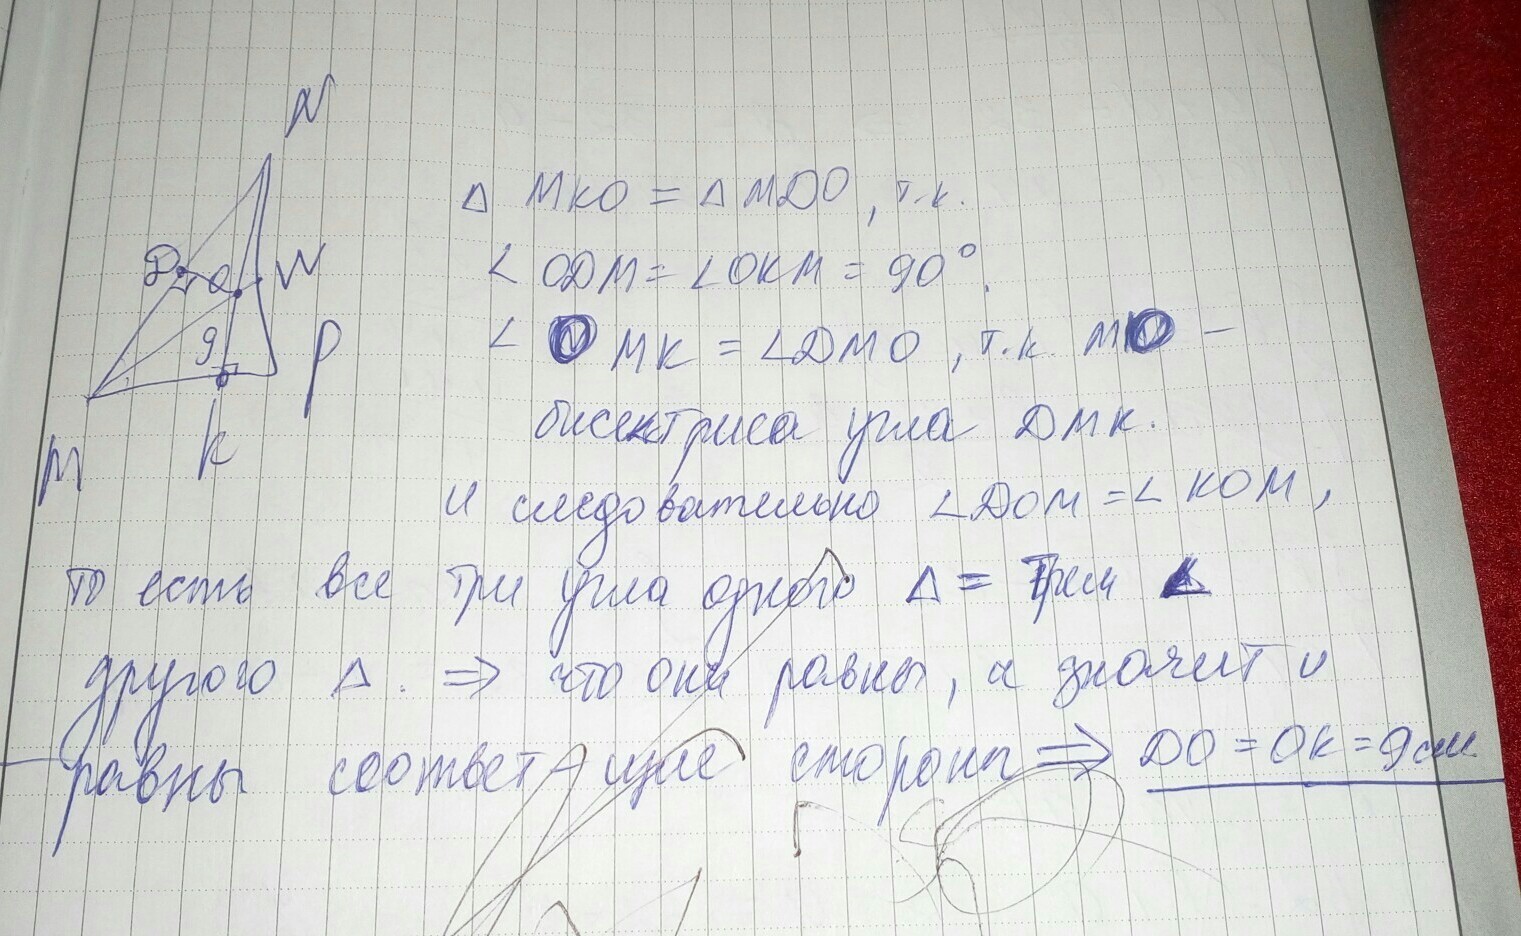 N
D
O
N
9
P
M
K
△ MKO = △ MDO, т.к.
∠ ODM = ∠OKM = 90°.
∠ OMK = ∠DMO, т.к. MO –
бисектриса угла DMK.
и следовательно ∠DOM = ∠ KOM,
то есть все три угла одного △ = трем
другого △. ⇒ что они равны, а значит и
равны соответ-щие стороны ⇒ DO = OK = 9см